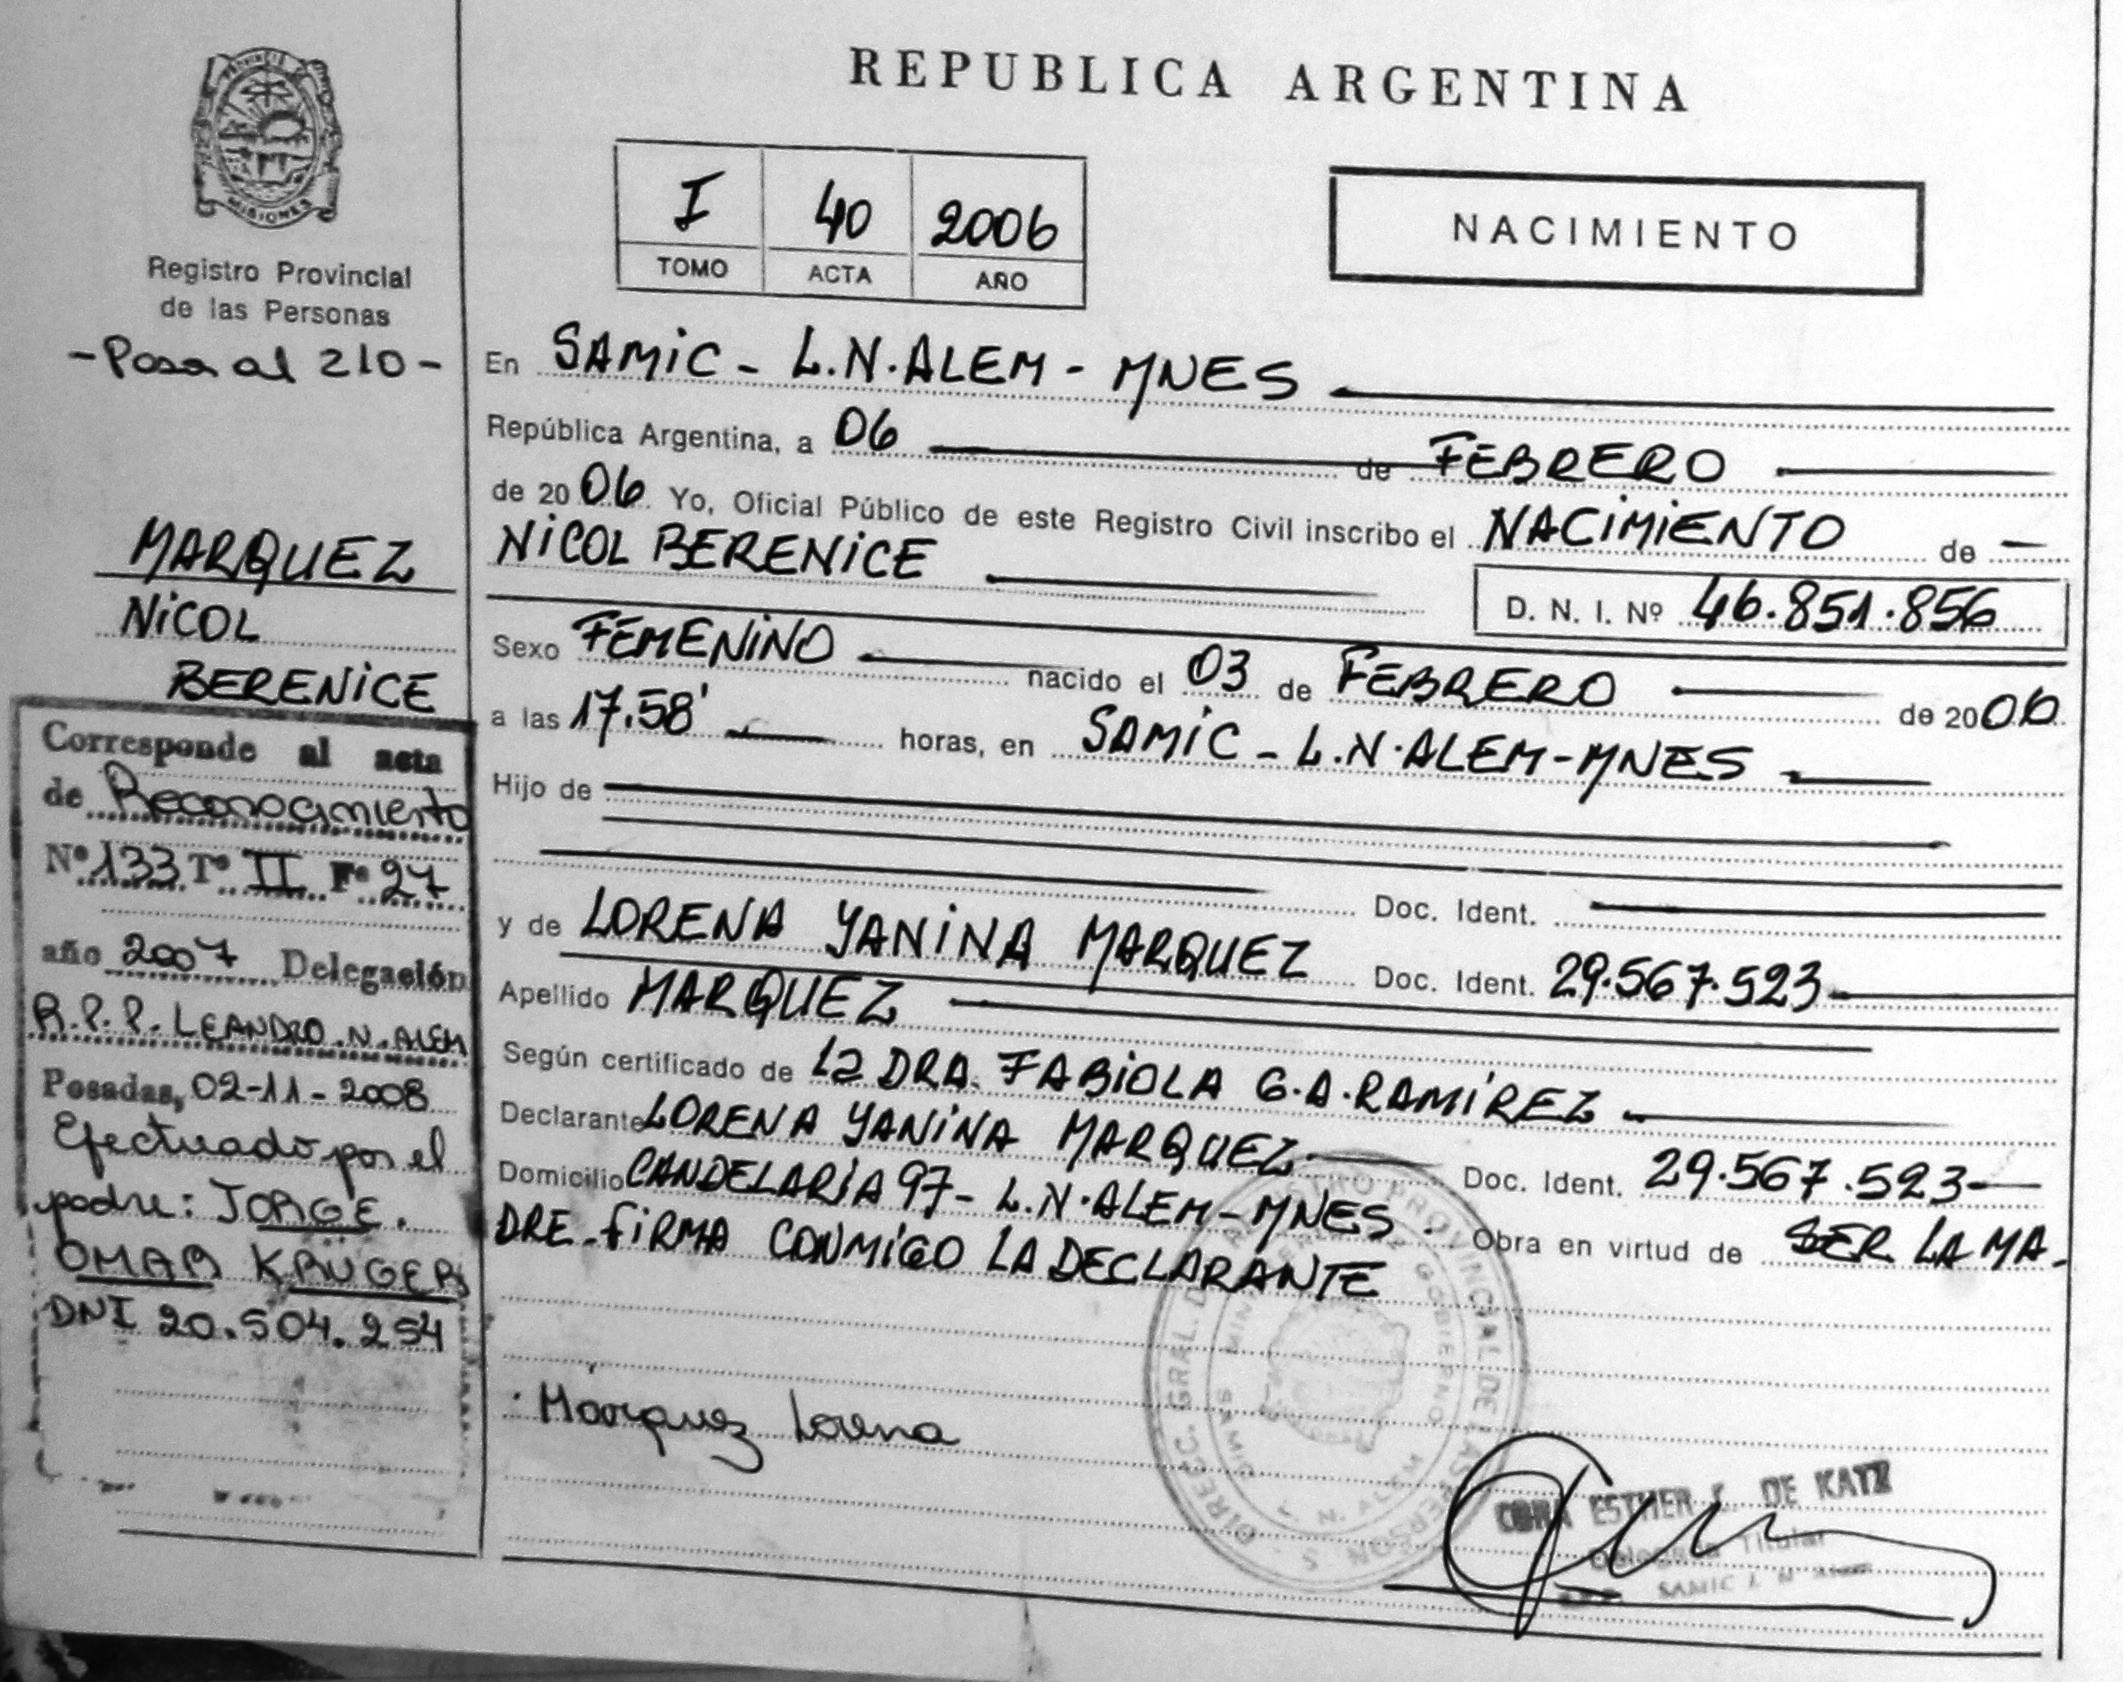 REPUBLICA ARGENTINA
MISIONES
Registro Provincial
de las Personas
- Pasa al 210 -
MARQUEZ
NICOL
BERENICE
Corresponde al acta
de Reconocimiento
Nº 133 Tº II Fº 27
año 2007 Delegación
R.P.P. LEANDRO.N.ALEM
Posadas, 02-11-2008
Efectuado por el
padre: JORGE.
OMAR KRÜGER
DNI 20.504.254
I 40 2006
TOMO ACTA AÑO
NACIMIENTO
En SAMIC - L.N.ALEM - MNES
República Argentina, a 06 de FEBRERO
de 2006 Yo, Oficial Público de este Registro Civil inscribo el NACIMIENTO de
NICOL BERENICE
D. N. I. Nº 46.851.856
Sexo FEMENINO nacido el 03 de FEBRERO de 2006
a las 17.58' horas, en SAMIC - L.N.ALEM-MNES
Hijo de
Doc. Ident.
y de LORENA YANINA MARQUEZ Doc. Ident. 29.567.523
Apellido MARQUEZ
Según certificado de La DRA. FABIOLA G.A.RAMÍREZ
Declarante LORENA YANINA MARQUEZ Doc. Ident. 29.567.523
Domicilio CANDELARIA 97- L.N.ALEM-MNES. Obra en virtud de SER LA MA-
DRE. FIRMA CONMIGO LA DECLARANTE
Márquez Lorena
DIRECC. GRAL. DEL REGISTRO PROVINCIAL DE LAS PERSONAS
GOBIERNO
SAMIC
L. N. ALEM
ESTHER DE KATZ
Titular
SAMIC L N Alem